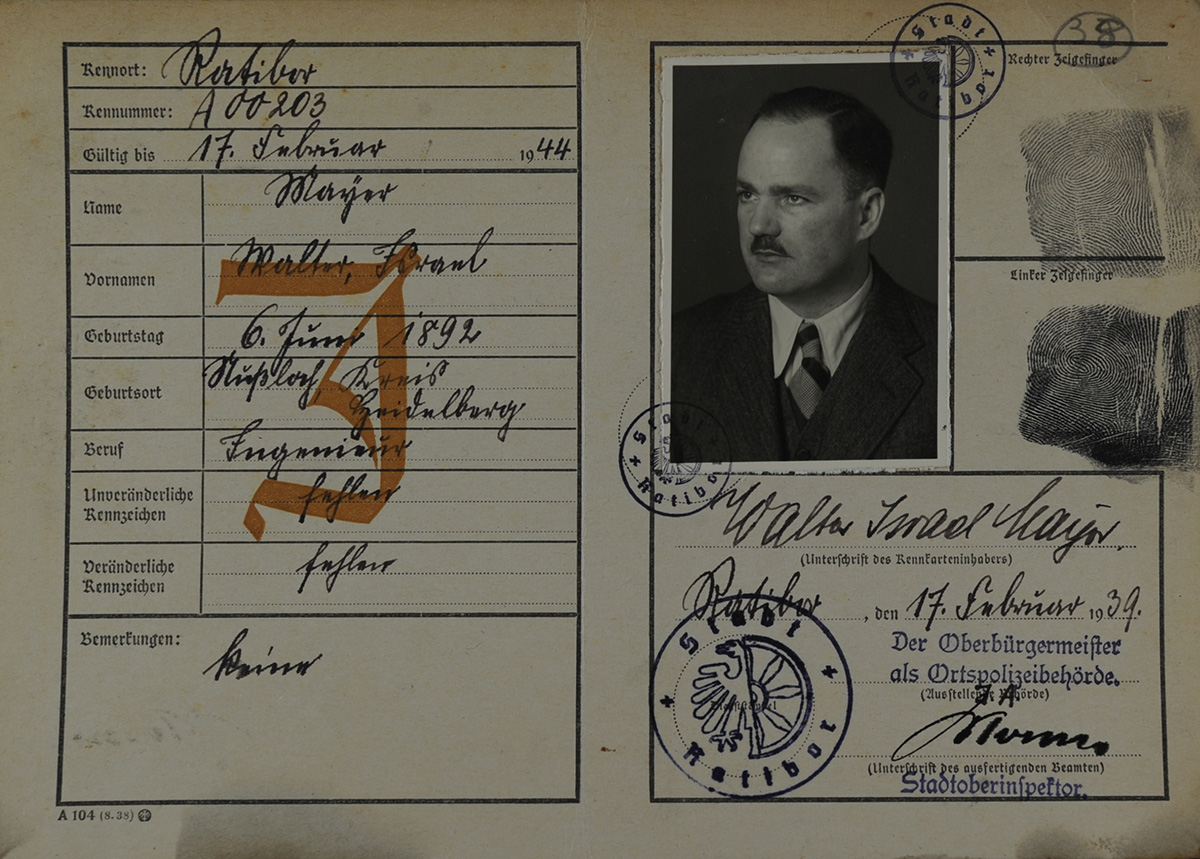 Kennort: Ratibor
Kennummer: A 00203
Gültig bis 17. Februar 1944
Name Mayer
Vornamen Walter, Israel
Geburtstag 6. Juni 1892
Geburtsort Nußloch, Kreis
Heidelberg
Beruf Ingenieur
Unveränderliche
Kennzeichen fehlen
Veränderliche
Kennzeichen fehlen
Bemerkungen:
keine
J
A 104 (8. 38)
38
Stadt
Ratibor
Rechter Zeigefinger
Linker Zeigefinger
Stadt
Ratibor
Walter Israel Mayer.
(Unterschrift des Kennkarteninhabers)
Ratibor, den 17. Februar 1939.
Der Oberbürgermeister
als Ortspolizeibehörde.
(Ausstellende Behörde)
J A
Stadt
Ratibor
Dienststempel
(Unterschrift des ausfertigenden Beamten)
Stadtoberinspektor.